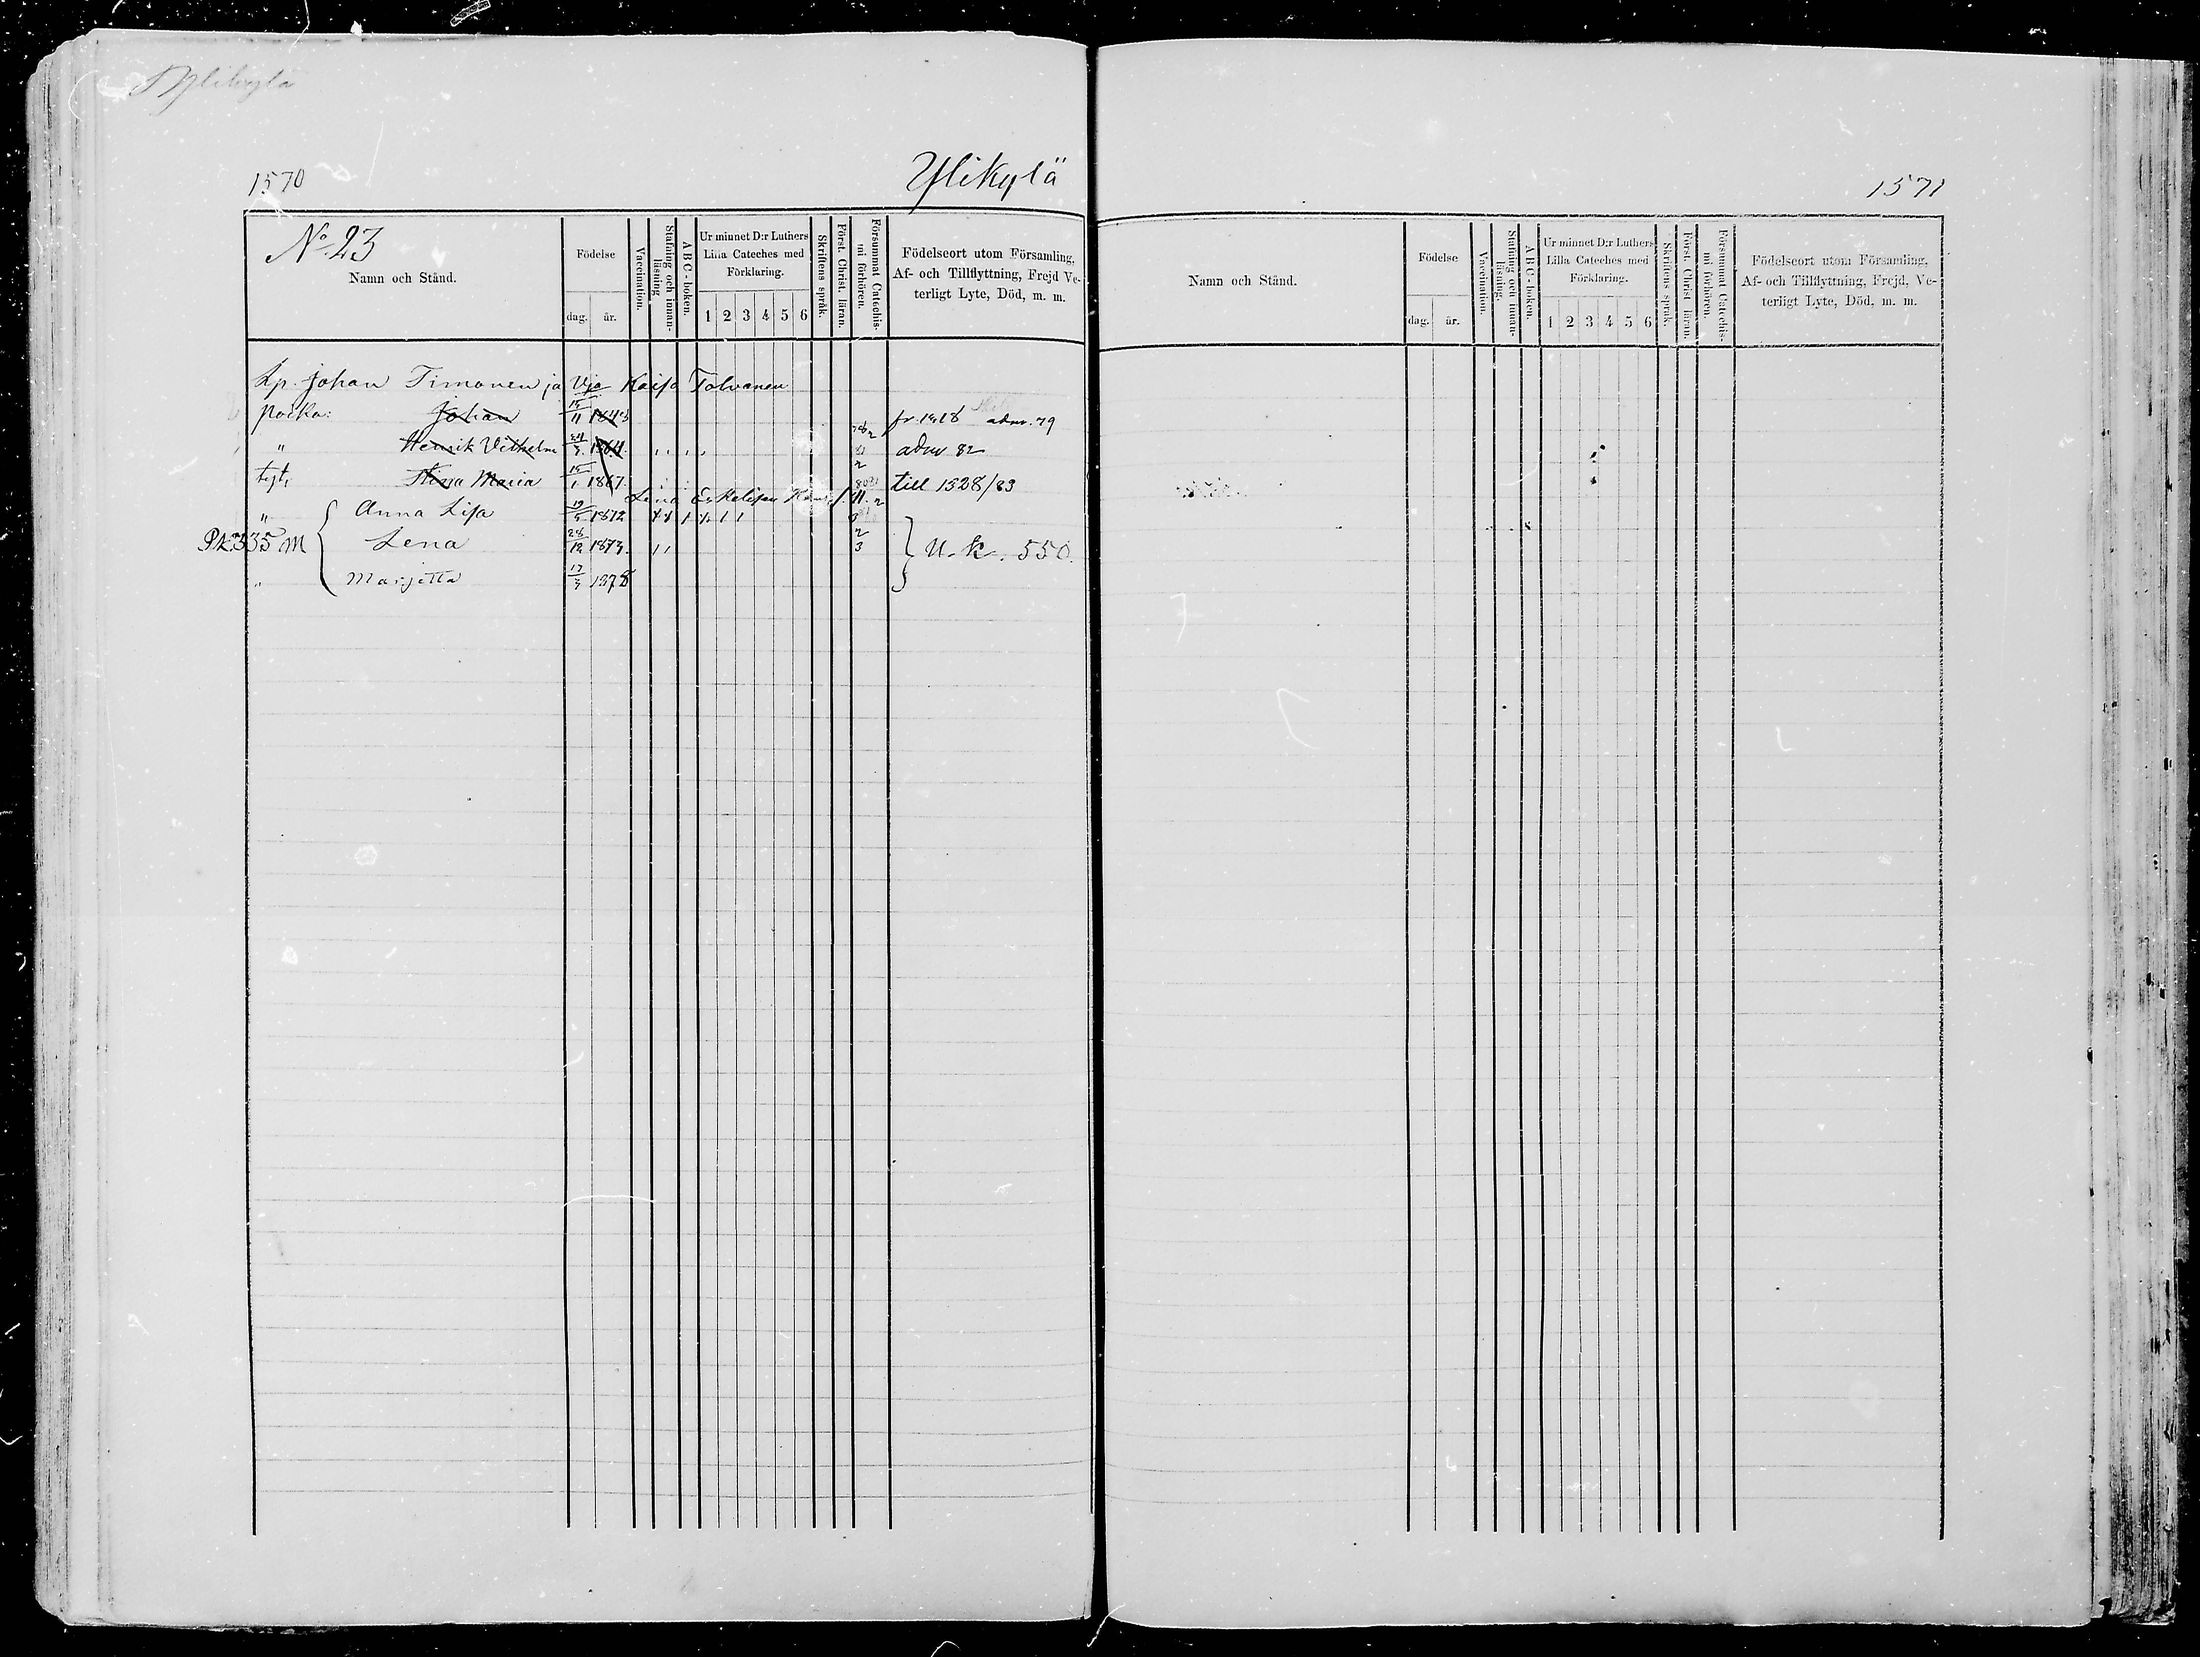 Ylikylä
1570 Ylikylä
No 23
Namn och Stånd. Födelse dag. år. Vaccination. Stafning och innanläsning ABC-boken. Ur minnet D:r Luthers Lilla Cateches med Förklaring. 1 2 3 4 5 6 Skriftens språk. Först. Christ. läran. Försummat Catechismi förhören. Födelseort utom Församling, Af- och Tillflyttning, Frejd Veterligt Lyte, Död, m. m.
Lp. Johan Timonen ja Vjo Kaisa Tolvanen
poika: Johan 11 adm. 79
" Henrik Vilhelm adm 82
tyt. Stina Maria 15/1 1867. till 1528/83
Lena
" Anna Lisa 1872
Pk. 335 M Lena 28/12 1873. 2 3 U. k. 550.
" Marjetta 17/3 1878
1571
Namn och Stånd. Födelse dag. år. Vaccination. Stafning och innanläsning. ABC-boken. Ur minnet D:r Luthers Lilla Cateches med Förklaring. 1 2 3 4 5 6 Skriftens språk. Först. Christ läran. Försummat Catechismi förhören. Födelseort utom Församling, Af- och Tillflyttning, Frejd, Veterligt Lyte, Död, m. m.